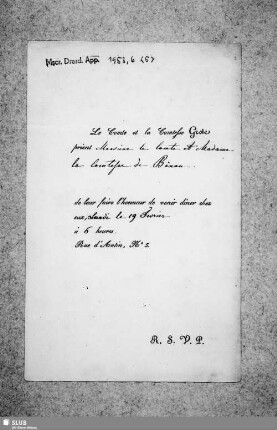 Mscr. Dresd. App. 1953, 6 (5)
Le Comte et la Comtesse
prient Monsieur le comte et Madame
la comtesse de
de leur faire l'honneur de venir dîner chez
eux, Lundi le 19 Fevrier
à 6 heures.
Rue d'Antin, No 5.
R. S. V. P.
SLUB